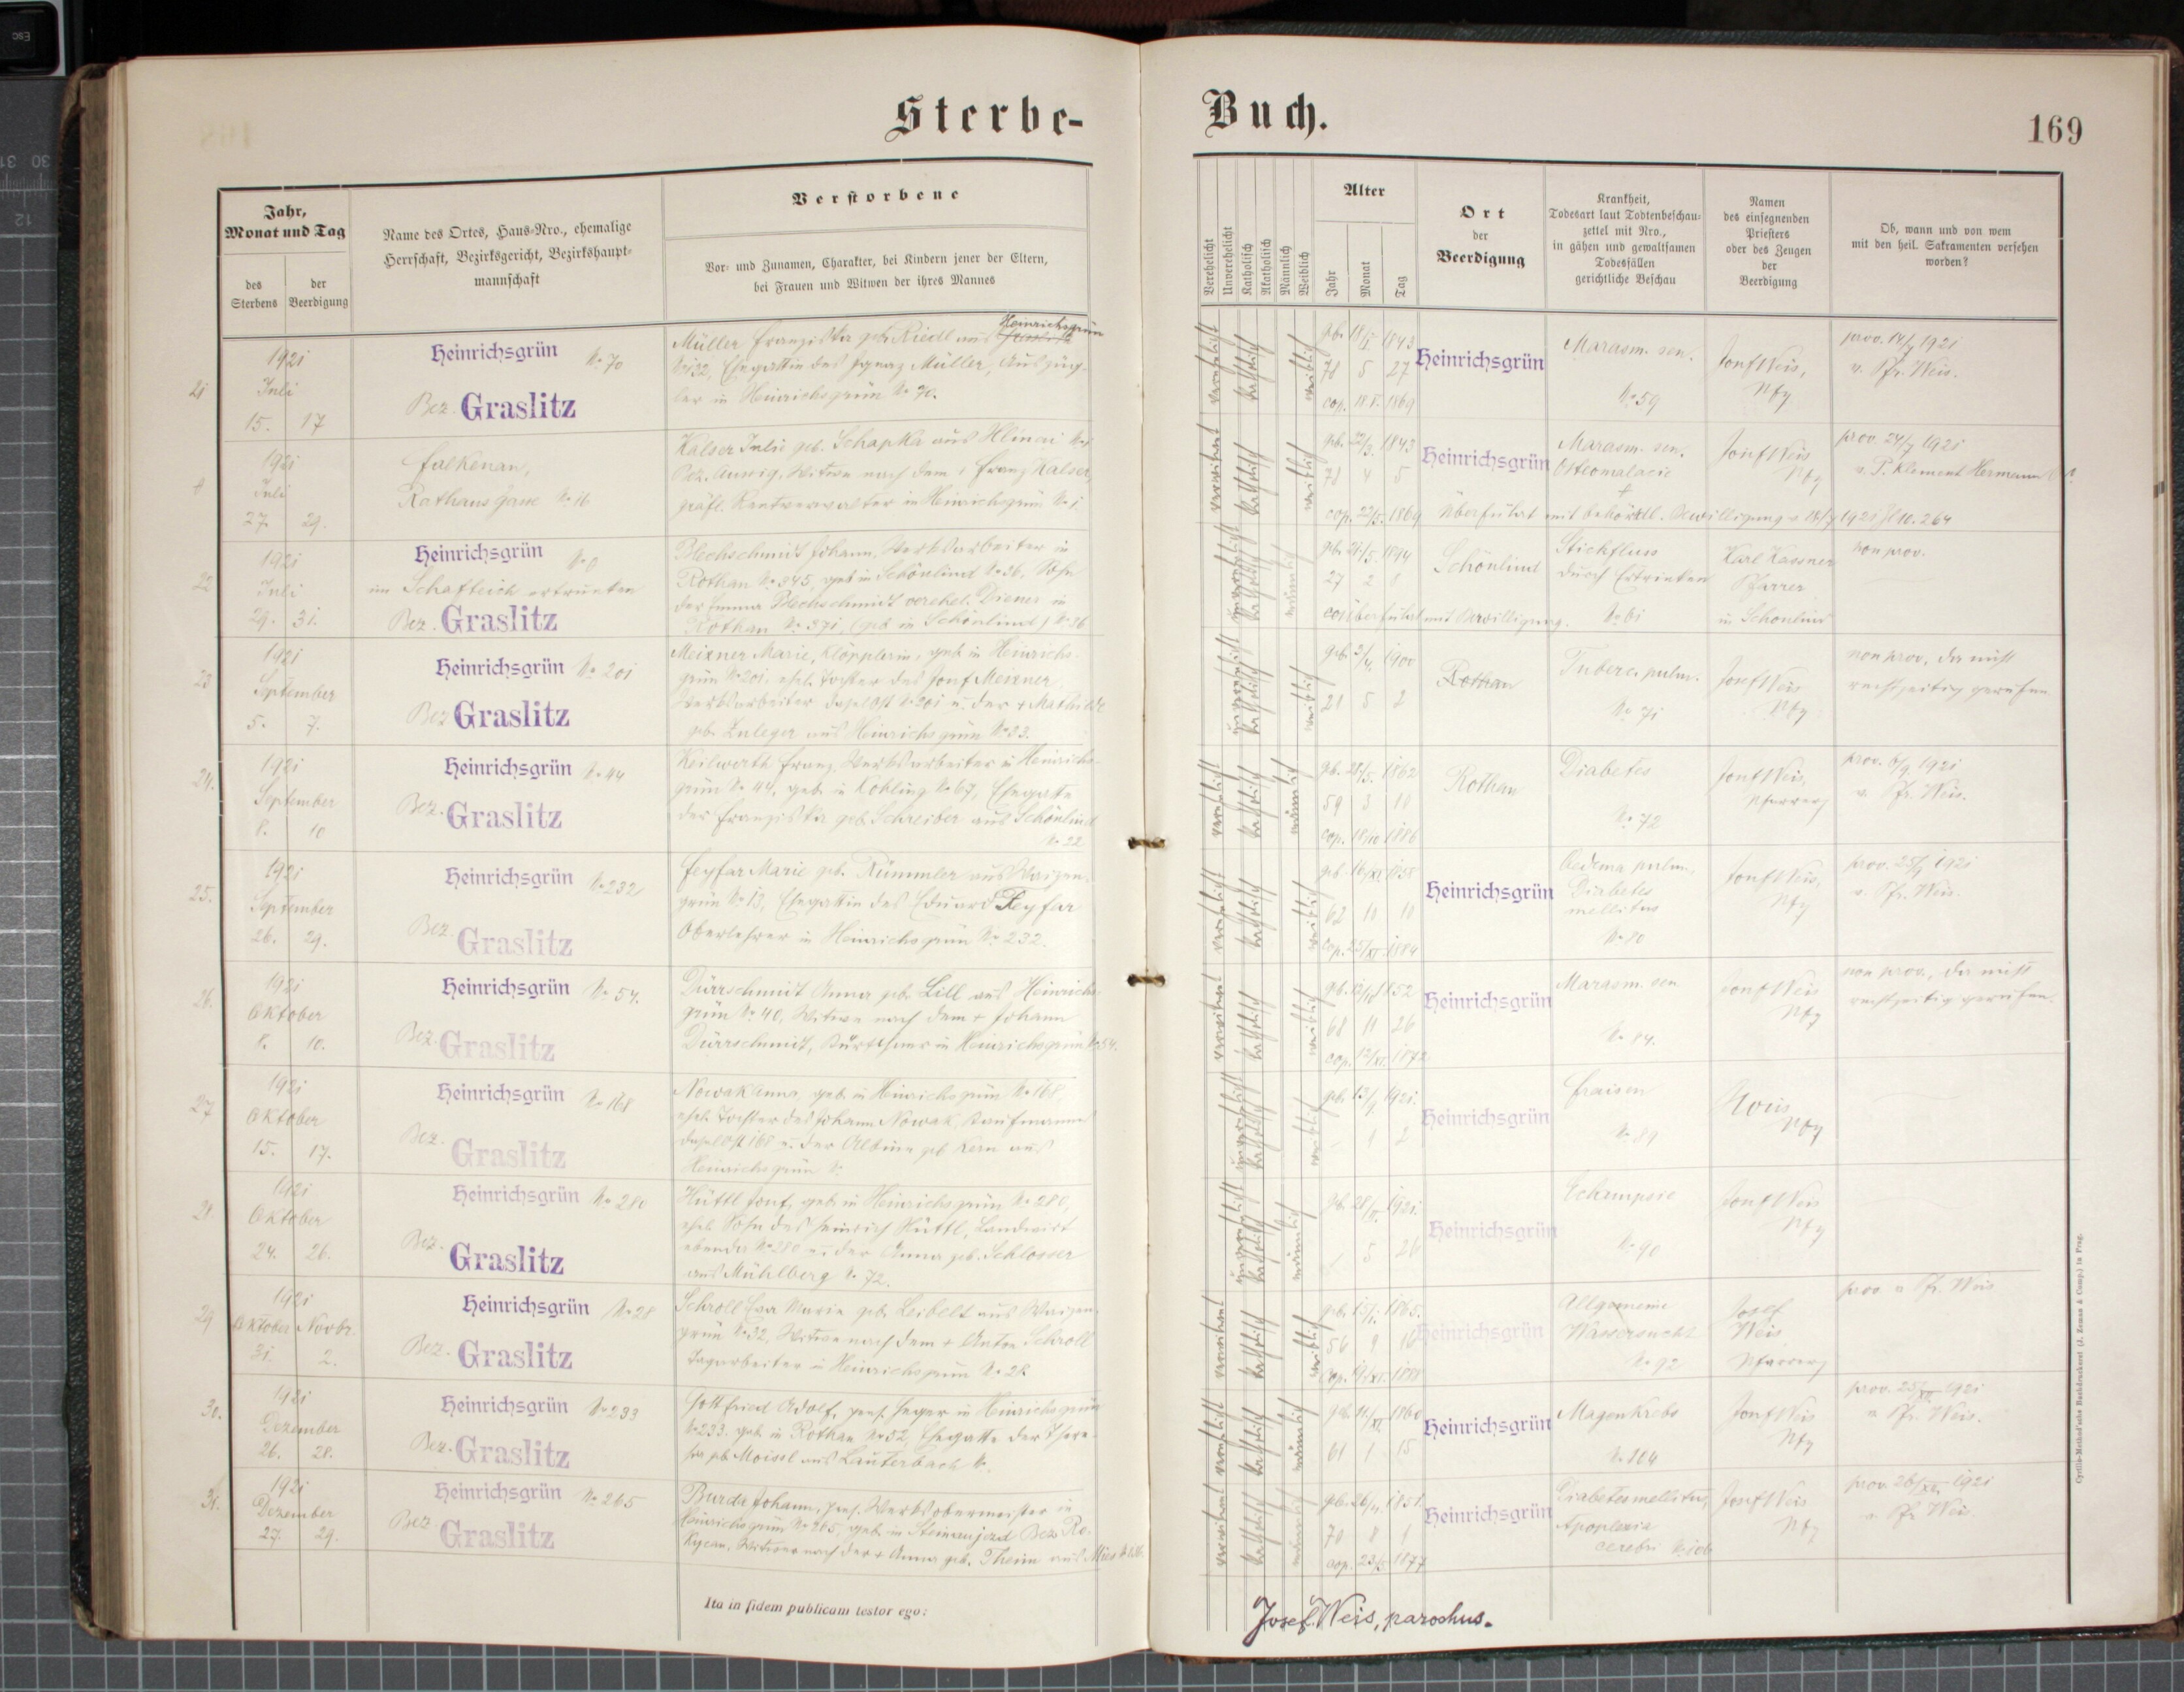 Sterbe-
Buch.
169
Jahr,
Monat und Tag
des
Sterbens
der
Beerdigung
Name des Ortes, Haus-Nro., ehemalige
Herrschaft, Bezirksgericht, Bezirkshaupt-
mannschaft
Verstorbene
Vor- und Zunamen, Charakter, bei Kindern jener der Eltern,
bei Frauen und Witwen der ihres Mannes
Verehelicht
Unverehelicht
Katholisch
Akatholisch
Männlich
Weiblich
Alter
Jahr
Monat
Tag
Ort
der
Beerdigung
Krankheit,
Todesart laut Todtenbeschau-
zettel mit Nro.,
in gähen und gewaltsamen
Todesfällen
gerichtliche Beschau
Namen
des einsegnenden
Priesters
oder des Zeugen
der
Beerdigung
Ob, wann und von wem
mit den heil. Sakramenten versehen
worden?
21
1921
Juli
15. 17
Heinrichsgrün No 70
Bez. Graslitz
Heinrichsgrün
Müller Franziska geb. Riedl aus
No 132, Ehegattin des Ignaz Müller, Auszüg-
ler in Heinrichsgrün No 70.
verehelicht katholisch weiblich
geb. 18/I. 1843
78 5 27
cop. 18.V. 1869
Heinrichsgrün
Marasm. sen.
No 59
Josef Weis,
Pfr
prov. 14/7 1921
v. Pfr. Weis.
1921
Juli
27. 29.
Falkenau,
Rathausgasse No 16
Kalser Julie geb. Schapka aus
Bez. Aussig, Witwe nach dem + Franz Kalser,
gräfl. Rentverwalter in Heinrichsgrün No 1.
verwitwet katholisch weiblich
geb. 22/3. 1843
78 4 5
cop. 22/5. 1869
Heinrichsgrün
Marasm. sen.
Osteomalacie
Josef Weis
Pfr
prov. 24/7 1921
v. P. Klement Hermann
Überführt mit behördl. Bewilligung v. 28/7 1921 Zl 10.264
22
1921
Juli
29. 31.
Heinrichsgrün No 0
im Schafteich ertrunken
Bez. Graslitz
Blechschmidt Johann, Werksarbeiter in
Rothau No 345, geb. in Schönlind No 36, Sohn
der Emma Blechschmidt verehel. Diener in
Rothau No 371, (geb. in Schönlind) No 36
unverehelicht katholisch männlich
geb. 21/5. 1894
27 2 8
Schönlind
Stickfluss
durch Ertrinken
No 61
Karl Kassner
Pfarrer
in Schönlind
non prov.
überführt mit Bewilligung.
23
1921
September
5. 7.
Heinrichsgrün No 201
Bez Graslitz
Meixner Marie, Klöpplerin, geb. in Heinrichs-
grün No 201. ehel. Tochter des Josef Meixner
Werksarbeiter daselbst No 201 u. der + Mathilde
geb. Zuleger aus Heinrichsgrün No 33.
unverehelicht katholisch weiblich
geb. 3/4. 1900
21 5 2
Rothau
Tuberc. pulm.
No 71
Josef Weis
Pfr
non prov., da nicht
rechtzeitig gerufen
24.
1921
September
8. 10
Heinrichsgrün No 44
Bez. Graslitz
Keilwerth Franz, Werksarbeiter in Heinrichs-
grün No 44, geb. in Kohling No 67, Ehegatte
der Franziska geb. Schreiber aus Schönlind
No 22
verehelicht katholisch männlich
geb. 28/5. 1862
59 3 10
cop. 18/10 1886
Rothau
Diabetes
No 72
Josef Weis,
Pfarrer
prov. 6/9 1921
v. Pfr. Weis.
25.
1921
September
26. 29.
Heinrichsgrün No 232
Bez. Graslitz
Feyfar Marie geb. Rümmler aus Waizen-
grün No 13, Ehegattin des Eduard Feyfar
Oberlehrer in Heinrichsgrün No 232.
verehelicht katholisch weiblich
geb. 16/XI. 1858
62 10 10
cop. 25/XI. 1884
Heinrichsgrün
Oedema pulm.,
Diabetes
mellitus
No 80
Josef Weis,
Pfr
prov. 25/9 1921
v. Pfr. Weis.
26.
1921
Oktober
8. 10.
Heinrichsgrün No 54.
Bez. Graslitz
Dürrschmidt Anna geb. Lill aus Heinrichs-
grün No 40, Witwe nach dem + Johann
Dürrschmidt, in Heinrichsgrün No 54.
verwitwet katholisch weiblich
1852
68 11 26
cop. 12/XI. 1872
Heinrichsgrün
Marasm. sen
No 84.
Josef Weis
Pfr
non prov., da nicht
rechtzeitig gerufen.
27
1921
Oktober
15. 17.
Heinrichsgrün No 168
Bez. Graslitz
Nowak Anna, geb. in Heinrichsgrün No 168,
ehel. Tochter des Johann Nowak, Kaufmanns
daselbst 168 u. der Albina geb. Kern aus
Heinrichsgrün No
unverehelicht katholisch weiblich
geb. 13/9. 1921.
- 1 2
Heinrichsgrün
Fraisen
No 89
Weis
Pfr
28.
1921
Oktober
24. 26.
Heinrichsgrün No 280
Bez. Graslitz
Hüttl Josef, geb. in Heinrichsgrün No 280,
ehel. Sohn des Heinrich Hüttl, Landwirt
ebenda No 280 u. der Anna geb. Schlosser
aus Mühlberg No 72.
unverehelicht katholisch männlich
1921.
5 26
Heinrichsgrün
Echampsie
No 90
Josef Weis
Pfr
29
1921
Oktober Novbr.
31. 2.
Heinrichsgrün No 28
Bez. Graslitz
Schroll Eva Maria geb. Leibelt aus Waizen-
grün No 32, Witwe nach dem + Anton Schroll
Tagarbeiter in Heinrichsgrün No 28
verwitwet katholisch weiblich
geb. 15/1. 1865.
56 9 16
1888
Heinrichsgrün
Allgemeine
Wassersucht
No 92
Josef
Weis
Pfarrer
prov. v. Pfr. Weis
30.
1921
Dezember
26. 28.
Heinrichsgrün No 233
Bez. Graslitz
Gottfried Adolf, pens. Heger in Heinrichsgrün
No 233. geb. in Rothau No 52, Ehegatte der There-
sia geb. Moissl aus Lauterbach No
verehelicht katholisch männlich
geb. 11/XI. 1860
61 1 15
Heinrichsgrün
Magenkrebs
No 104
Josef Weis
Pfr
prov. 25/XII 1921
v. Pfr. Weis.
31.
1921
Dezember
27. 29.
Heinrichsgrün No 265
Bez. Graslitz
Burda Johann, pens. Werksobermeister in
Heinrichsgrün No 265, geb. in Bez. Ro-
kycan, Witwer nach der + Anna geb. Theim aus Mies
verwitwet katholisch männlich
geb. 26/4. 1851.
70 8 1
cop. 23/5. 1877
Heinrichsgrün
Diabetes mellitus,
Apoplexia
cerebri
Josef Weis
Pfr
prov. 26/XII 1921
v. Pfr. Weis.
Ita in fidem publicam testor ego:
Josef Weis, parochus.